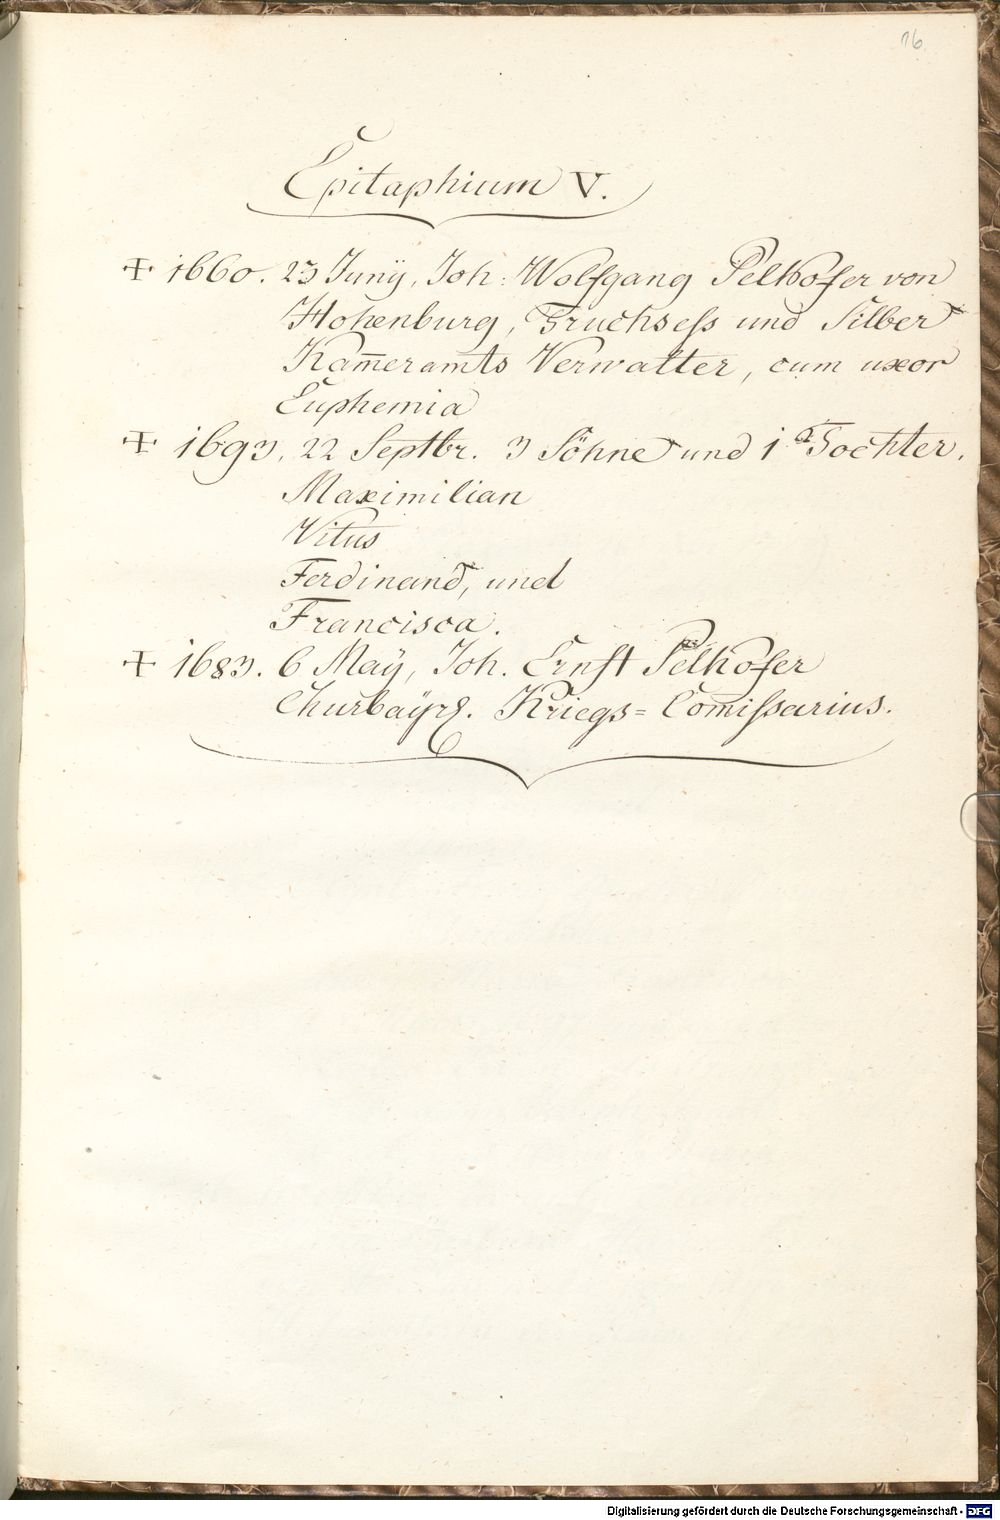 16
Epitaphium V.
✠ 1660. 23 Junÿ, Joh: Wolfgang Pelkofer von
Hohenburg, Truchseß und Silber
Kam̅eramts Verwalter, cum uxor
Euphemia
✠ 1693. 22 Septbr. 3 Söhne und 1 Tochter.
Maximilian
Vitus
Ferdinand, und
Francisca.
✠ 1683. 6 Maÿ, Joh. Ernst Pelkofer
Churbaÿr. Kriegs=Com̅ißarius.
Digitalisierung gefördert durch die Deutsche Forschungsgemeinschaft - DFG